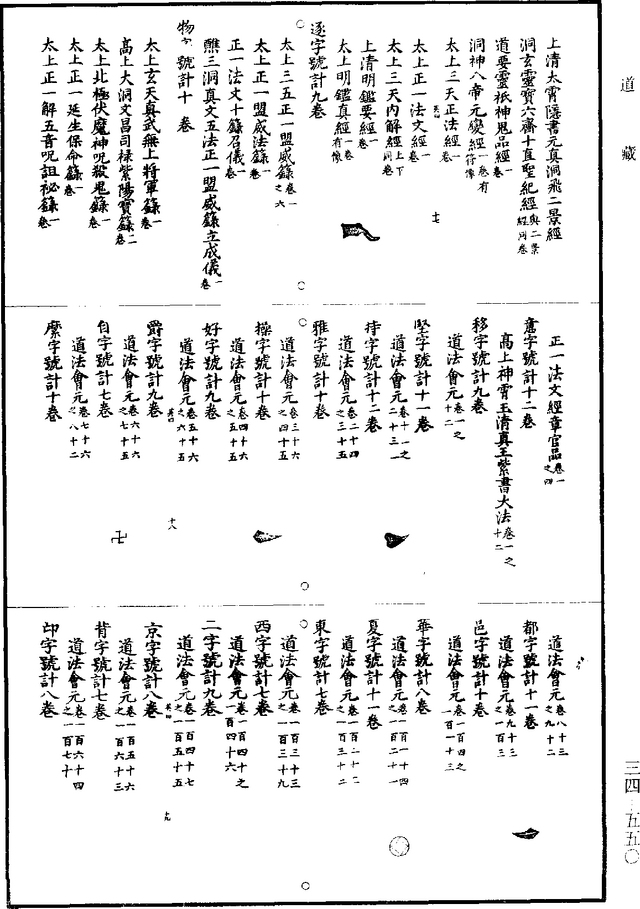 道藏
上清太霄隱書元真洞飛二景經
洞玄靈寶六齋十直聖紀經與二景經同卷
道要靈祇神鬼品經一卷
洞神八帝元變經一卷有符像
太上三天正法經一卷
太上正一法文經一卷
十七
太上三天內解經上下同卷
上清明鑑要經一卷
太上明鑑真經一卷有像
逐字號計九卷
太上三五正一盟威籙卷一之六
太上正一盟威法籙一卷
正一法文十籙召儀一卷
醮三洞真文五法正一盟威籙立成儀一卷
物字號計十卷
太上玄天真武無上將軍籙一卷
高上大洞文昌司祿紫陽寶籙二卷
太上北極伏魔神呪殺鬼籙一卷
太上正一延生保命籙一卷
太上正一解五音呪詛祕籙一卷
正一法文經章官品卷一之四
意字號計十二卷
高上神霄玉清真王紫書大法卷一之十二
移字號計九卷
道法會元卷一之十二
堅字號計十一卷
道法會元卷十一之二十三
持字號計十二卷
道法會元卷二十四之三十五
雅字號計十卷
道法會元卷三十六之四十五
操字號計十卷
道法會元卷四十六之五十五
好字號計九卷
道法會元卷五十六之六十五
十八
爵字號計九卷
道法會元卷六十六之七十五
自字號計七卷
道法會元卷七十六之八十二
縻字號計十卷
道法會元卷八十三之九十二
都字號計十一卷
道法會元卷九十三之一百三
邑字號計十卷
道法會元卷一百四之一百一十三
華字號計八卷
道法會元卷一百一十四之一百二十一
夏字號計十一卷
道法會元卷一百二十二之一百三十二
東字號計七卷
道法會元卷一百三十三之一百三十九
西字號計七卷
道法會元卷一百四十之一百四十六
二字號計九卷
道法會元卷一百四十七之一百五十五
十九
京字號計八卷
道法會元卷一百五十六之一百六十三
背字號計七卷
道法會元卷一百六十四之一百七十
邙字號計八卷
三四—五五〇